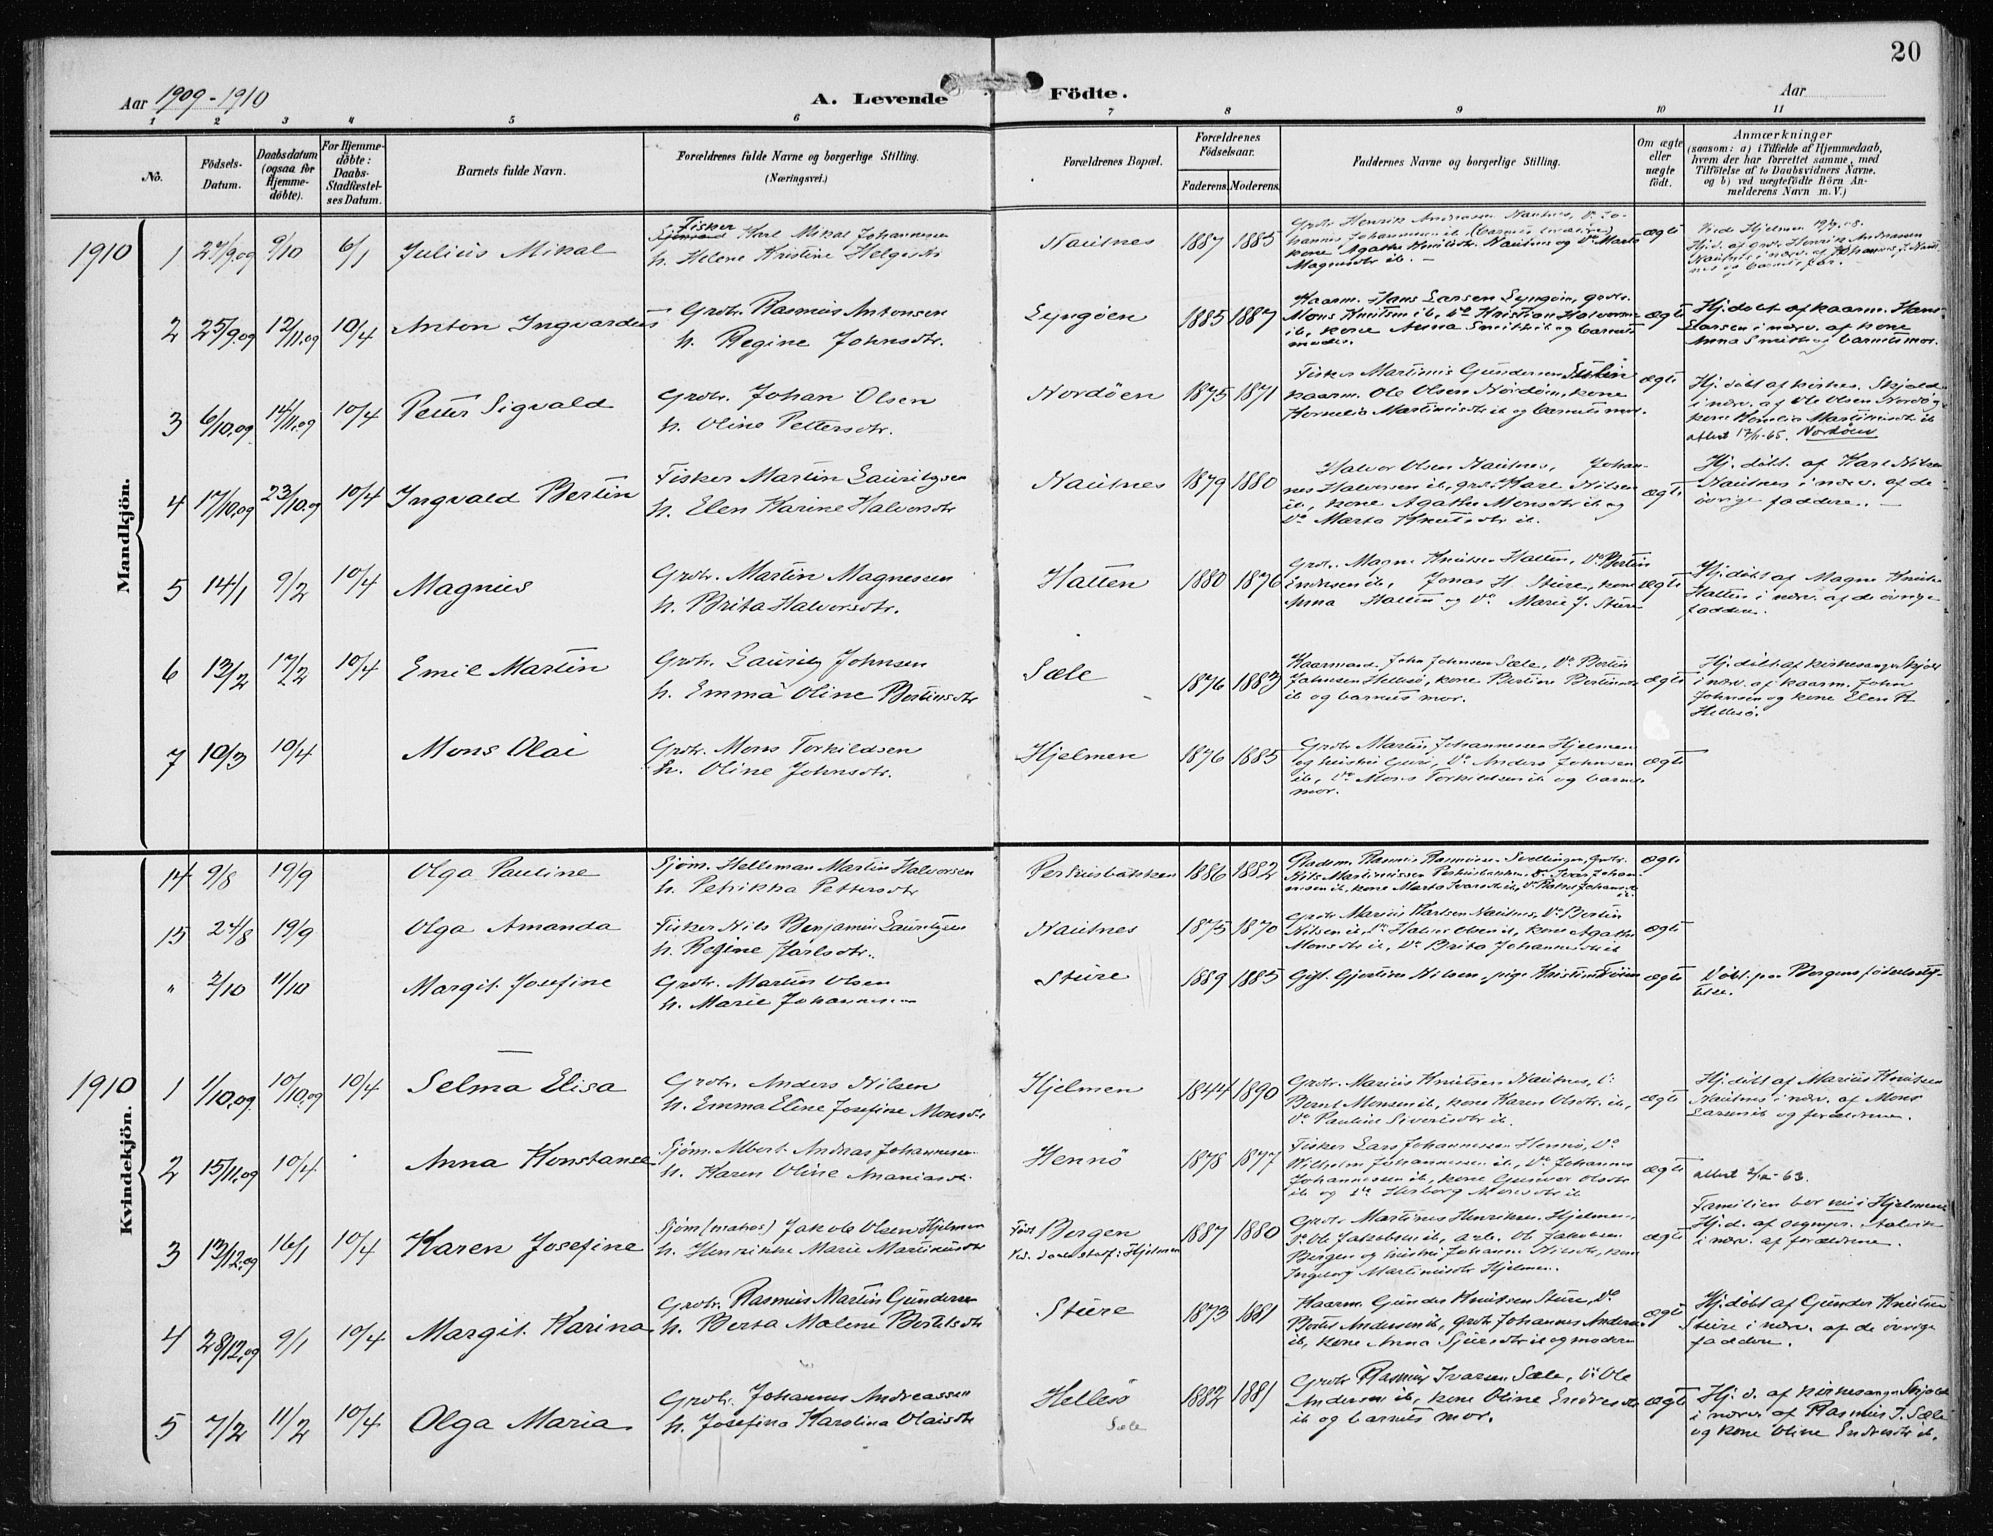 20
Aar 1909-1910
A. Levende Födte.
Aar
1 2 3 4 5 6 7 8 9 10 11
No.
Födsels-Datum.
Daabsdatum (ogsaa for Hjemme-döbte).
For Hjemme-döbte: Daabs-Stadfæstel-ses Datum.
Barnets fulde Navn.
Forældrenes fulde Navne og borgerlige Stilling.
(Næringsvei.)
Forældrenes Bopæl.
Forældrenes Födselsaar.
Faderens. Moderens.
Faddernes Navne og borgerlige Stilling.
Om ægte eller uægte födt.
Anmærkninger
(saasom: a) i Tilfælde af Hjemmedaab,
hvem der har forrettet samme, med
Tilföielse af to Daabsvidners Navne,
og b) ved uægtefödte Börn An-
melderens Navn m. V.)
Mandkjön.
1910 1 9/10 6/1 Julius Mikal
Fisker Karl Mikal Johannesen
h. Helene Kristine Helgesdtr
Nautnes 1887 1885 ægte
2 25/9.09 12/11.09 10/4 Anton Ingvardus
Grdbr. Rasmus Antonsen
h. Regine Johnsdtr.
Lyngöen 1885 1887
Haarm. Hans Larsen Lyngöen, grdbr.
Mons Knutsen ib, do Kristian Halvorsen
ib, kone Anna Smith ib og barnets
moder.
ægte
Hj. döbt af kaarm. Hans
Larsen i nærv. af kone
Anna Smith og barnets mor.
3 6/10.09 14/11.09 10/4 Petter Sigvald
Grdbr. Johan Olsen
h. Oline Pettersdtr.
Nordöen 1875 1871
kaarm. Ole Olsen Nordöen, kone
Kornelia Martinusdtr ib og barnets mor.
ægte
Hj. döbt af kirkes. Skjold
i nærv. af Ole Olsen Nordö og
kone Kornelia Martinusdtr ib
Nordöen
4 17/10.09 23/10.09 10/4 Ingvald Bertin
Fisker Martin Lauritzsen
h. Elen Karine Halvorsdtr
Nautnes 1879 1880
Halvor Olsen Nautnes, Johan-
nes Halvorsen ib, grdbr. Karl Nilsen
ib, kone Agathe Monsdtr ib og
do Marta Knutsdtr ib.
ægte
Hj. döbt af Karl Nilsen
Nautnes i nærv. af de
övrige faddere.
5 14/1 9/2 10/4 Magnus
Grdbr. Martin Magnesen
h. Brita Halvorsdtr.
Hatten 1880 1876
Grdbr. Magne Knutsen Hatten, do Bertin
Endresen ib, Jonas H. Sture, kone
Anna Hatten og do Marie J. Sture
ægte
Hj. döbt af Magne Knutsen
Hatten i nærv. af de övrige
faddere.
6 13/2 17/2 10/4 Emil Martin
Grdbr. Lauritz Johnsen
h. Emma Oline Bertinsdtr
Sæle 1876 1883
Kaarmand John Johnsen Sæle, do Bertin
Johnsen Hellesö, kone Bertine Bertinsdtr
ib og barnets mor.
ægte
Hj. döbt af kirkesanger Skjold
i nærv. af kaarm. John
Johnsen og kone Elen R
Hellesö.
7 10/3 10/4 Mons Olai
Grdbr. Mons Torkildsen
h. Oline Johnsdtr.
Hjelmen 1876 1885
Grdbr Martin Johannesen Hjelmen
og hustru Guri, do Anders Johnsen
ib, do Mons Torkildsen ib og barnets
mor.
ægte
Kvindekjön.
14 9/8 19/9 Olga Pauline
Sjöm. Helleman Martin Halvorsen
h. Petrikka Pettersdtr
1886 1882 ægte
15 24/8 19/9 Olga Amanda
Fisker Nils Benjamin Lauritzsen
h. Regine Karlsdtr.
Nautnes 1875 1870
Grdbr Marius Karlsen Nautnes, do Bertin
Nilsen ib, do Halvor Olsen ib, kone Agathe
Monsdtr ib, do Brita Johannesdtr ib
ægte
" 2/10 11/10 Margit Josefine
Grdbr. Martin Olsen
h. Marie Johannesen
Sture 1889 1885
Gift. Gjertine Nilsen, pige Kristine
ægte
Döbt paa Bergens födselsstif-
telse.
1910 1 1/10.09 10/10.09 10/4 Selma Elisa
Grdbr. Anders Nilsen
h. Emma Eline Josefine Monsdtr
Hjelmen 1844 1890
Grdbr. Marius Knutsen Nautnes, do
Bernt Monsen ib, kone Karen Olsdtr ib,
do Pauline Sivertsdtr ib.
ægte
Hj. döbt af Marius Knutsen
Nautnes i nærv. af Mons
Larsen ib og forældrene.
2 15/11.09 10/4 Anna Konstanse
Sjöm. Albert Andreas Johannesen
h. Karen Oline Ananiasdtr.
Hennö 1878 1877
Fisker Lars Johannessen Hennö, do
Wilhelm Johannessen ib, do Johannes
Johannessen ib, kone Gunvor Olsdtr
ib og do Herborg Monsdtr ib
ægte
3 13/12.09 16/1 10/4 Karen Josefine
Sjöm (matros) Jakob Olsen Hjelmen
h. Henrikke Marie Martinusdtr
Födt Bergen
1887 1880
Grdbr Martinus Henriksen Hjelmen,
do Ole Jakobsen ib, arb. Ole Jakobsen
Bergen og hustru Johanne Nilsdtr, kone
Ingeborg Martinusdtr Hjelmen.
ægte
Familien bor nu i Hjelmen
i nærv. af forældrene.
4 28/12.09 9/1 10/4 Margit Karina
Grdbr. Rasmus Martin Gundersen
h. Berta Malene Bertelsdtr
Sture 1873 1881
Kaarm. Gunder Knutsen Sture, do
Bertel Andersen ib, grdbr Johannes Andersen
ib, kone Anna Sjursdtr ib og moderen
ægte
Hj. döbt af Gunder Knutsen
Sture i nærv. af de övrige
faddere.
5 7/2 11/2 10/4 Olga Maria
Grdbr. Johannes Andreassen
h. Josefina Karolina Olaisdtr
Hellesö
Sæle
1882 1881
Grdbr Rasmus Ivarsen Sæle, do Ole
Andersen ib, kone Oline Endresdtr
ib og barnets mor.
ægte
Hj. d. af kirkesanger Skjold
i nærv. af Rasmus I. Sæle
og kone Oline Endresdtr ib.